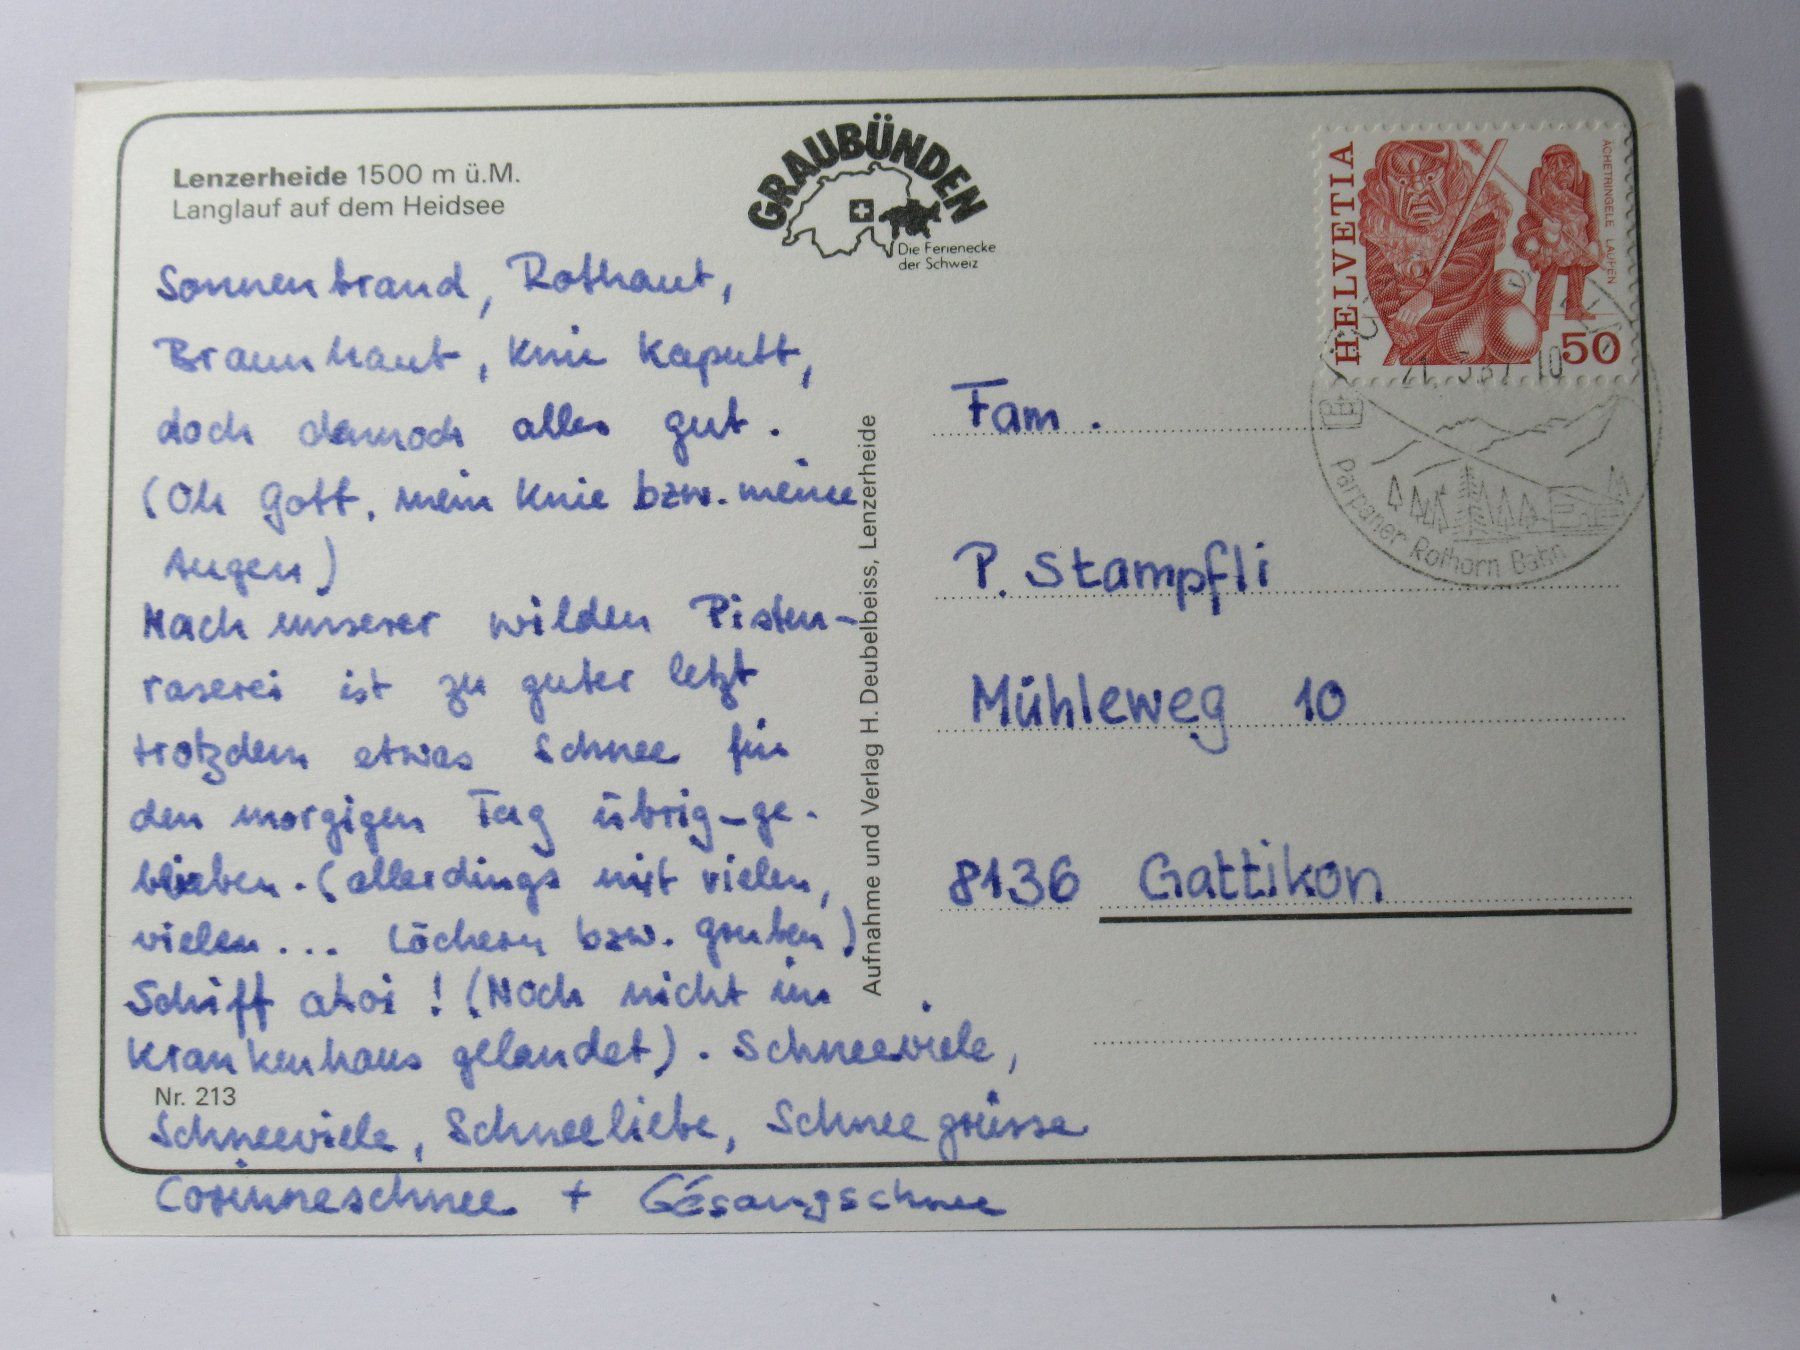 Lenzerheide 1500 m ü.M.
Langlauf auf dem Heidsee
GRAUBÜNDEN
Die Ferienecke
der Schweiz
Sonnenbrand, Rothaut,
Braunhaut, Knie kaputt,
doch dennoch alles gut.
(Oh Gott, mein Knie bzw. meine
Augen)
Nach unserer wilden Pisten-
raserei ist zu guter letzt
trotzdem etwas Schnee für
den morgigen Tag übrig-ge-
blieben. (allerdings mit vielen,
vielen... Löchern bzw. gruben)
Schiff ahoi! (Noch nicht im
Krankenhaus gelandet). Schneeviele,
Schneeviele, Schneeliebe, Schneegrüsse
Corinneschnee + Gesangschnee
Nr. 213
Aufnahme und Verlag H. Deubelbeiss, Lenzerheide
HELVETIA
ACHETRINGELE LAUPEN
50
Parpaner Rothorn Bahn
Fam.
P. Stampfli
Mühleweg 10
8136 Gattikon